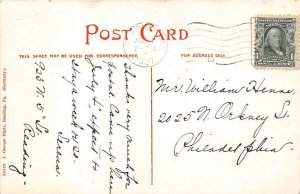 POST CARD
THIS SPACE MAY BE USED FOR CORRESPONDENCE.
FOR ADDRESS ONLY.
Thanks very much for
Came up here
I expect to
stay a week or so.
723 N. 8" St.
Reading-
Mr. William Henne,
2025 N. Orkney St.
Philadelphia
J. George Hintz, Reading, Pa. (Germany)